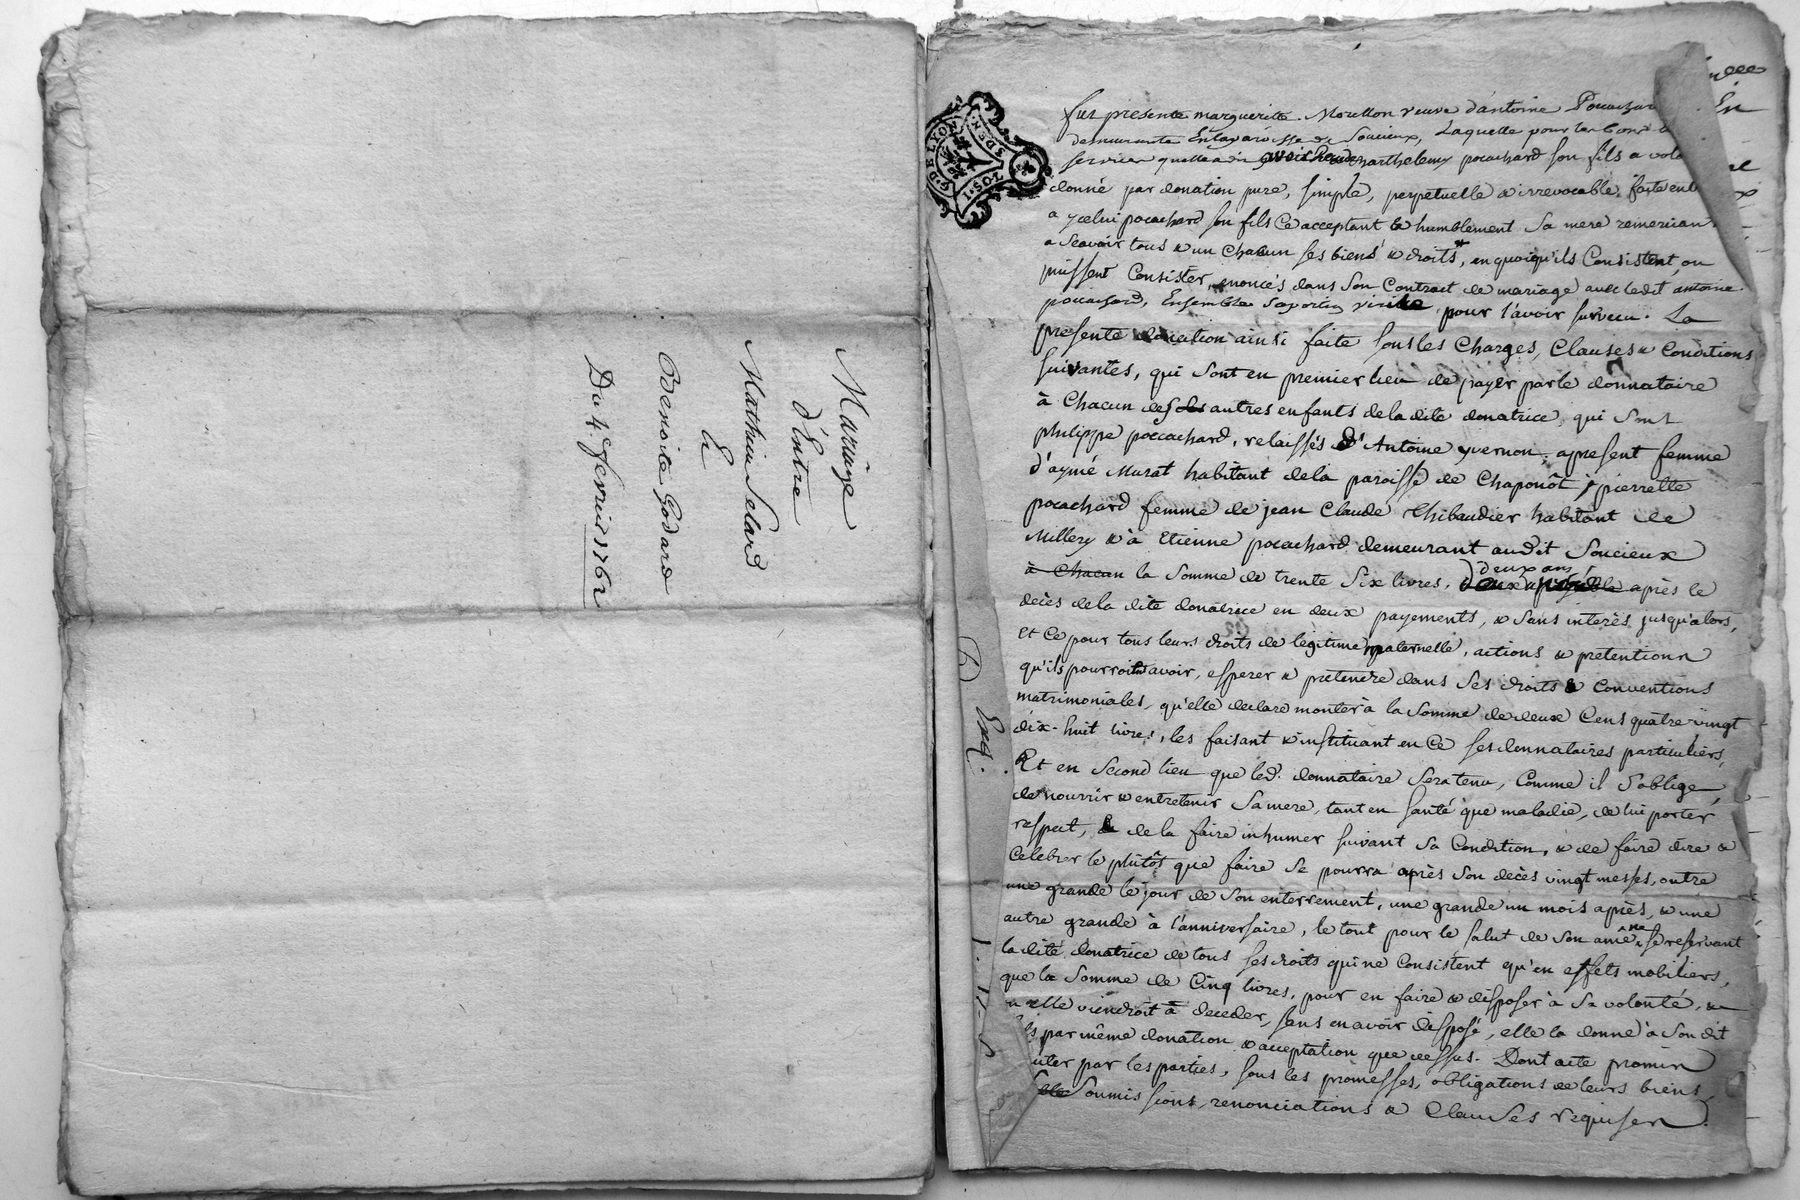 Mariage
d'Entre
Mathieu Selard
Et
Benoite Godard
Du 4. fevrier 1762
G. DE LYON
1. SOL
3 DEN
fut presente margueritte Morellon veuve d'antoine
demeurante En la paroisse de Soucieux, Laquelle pour les bons
services quelle a dit avoir barthelemy pocachard son fils a
donné par donation pure, simple, perpetuelle & irrevocable, faite
a ycelui pocachard son fils ce acceptant & humblement sa mere remerciant
a Scavoir tous & un chacun ses biens & droits, en quoiqu'ils Consistent, ou
puissent Consister, enoncés dans son Contract de mariage avec ledit antoine
pocachard, Ensemble sa portion virile pour l'avoir survecu. La
presente donation ainsi faite sous les Charges, Clauses & Conditions
suivantes, qui sont en premier lieu de payer par le donnataire
à Chacun des autres enfants de la dite donatrice, qui sont
philippe pocachard, relaissés d'Antoine yvernon, apresent femme
d'aymé Murat habitant de la paroisse de Chaponôt, pierrette
pocachard femme de jean Claude Thibaudier habitant de
Millery & à Etienne pocachard demeurant audit Soucieux
à Chacun la Somme de trente Six livres, deux ans après le
decès de la dite donatrice en deux payements, & Sans interès jusqu'alors,
Et Ce pour tous leurs droits de legitime maternelle, actions & pretentions
qu'ils pourroient avoir, esperer & pretendre dans Ses droits & Conventions
matrimoniales, qu'elle declare monter à la Somme de deux Cens quatre vingt
dix-huit livres, les faisant & instituant en Ce ses donnataires particuliers,
Et en Second lieu que led. donnataire Sera tenu, Comme il s'oblige
de nourrir & entretenir Sa mere, tant en santé que maladie, de lui porter
respect, & de la faire inhumer suivant Sa Condition, & de faire dire &
Celebrer le plûtôt que faire Se pourra après Son decès vingt messes, outre
une grande le jour de Son enterrement, une grande un mois après, & une
autre grande à l'anniversaire, le tout pour le salut de Son ame, ne se reservant
la dite donatrice de tous ses droits qui ne Consistent qu'en effets mobiliers,
que la Somme de Cinq livres, pour en faire & disposer à Sa volonté, &
elle viendroit à deceder, sans en avoir disposé, elle la donne à Son dit
fils par même donation & acceptation que dessus. Dont acte promis
par les parties, sous les promesses, obligations de leurs biens,
Soumissions, renonciations & Clauses requises.